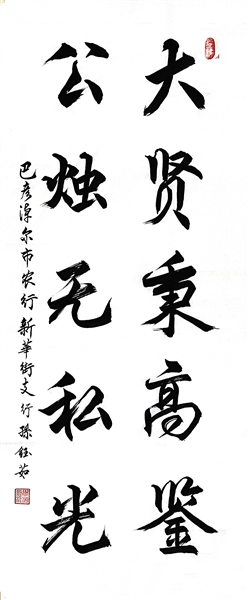 大贤秉高鉴
公烛无私光
巴彦淖尔市农行新华街支行孙钰茹